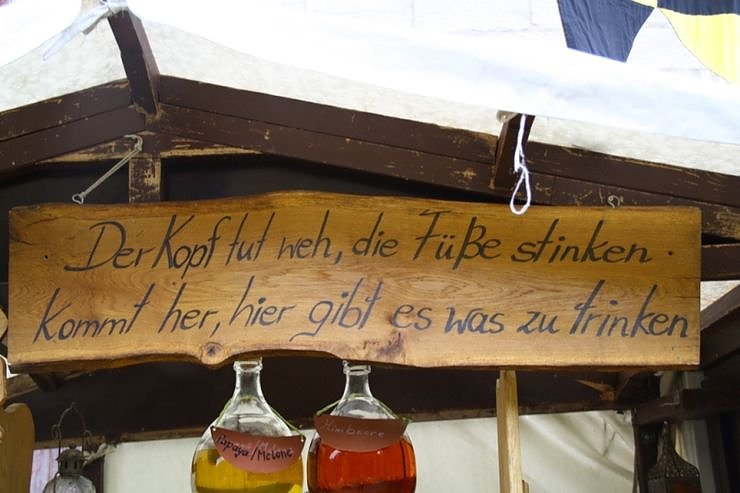 Der Kopf tut weh, die Füße stinken.
Kommt her, hier gibt es was zu trinken
Papaya/Melone
Himbeere